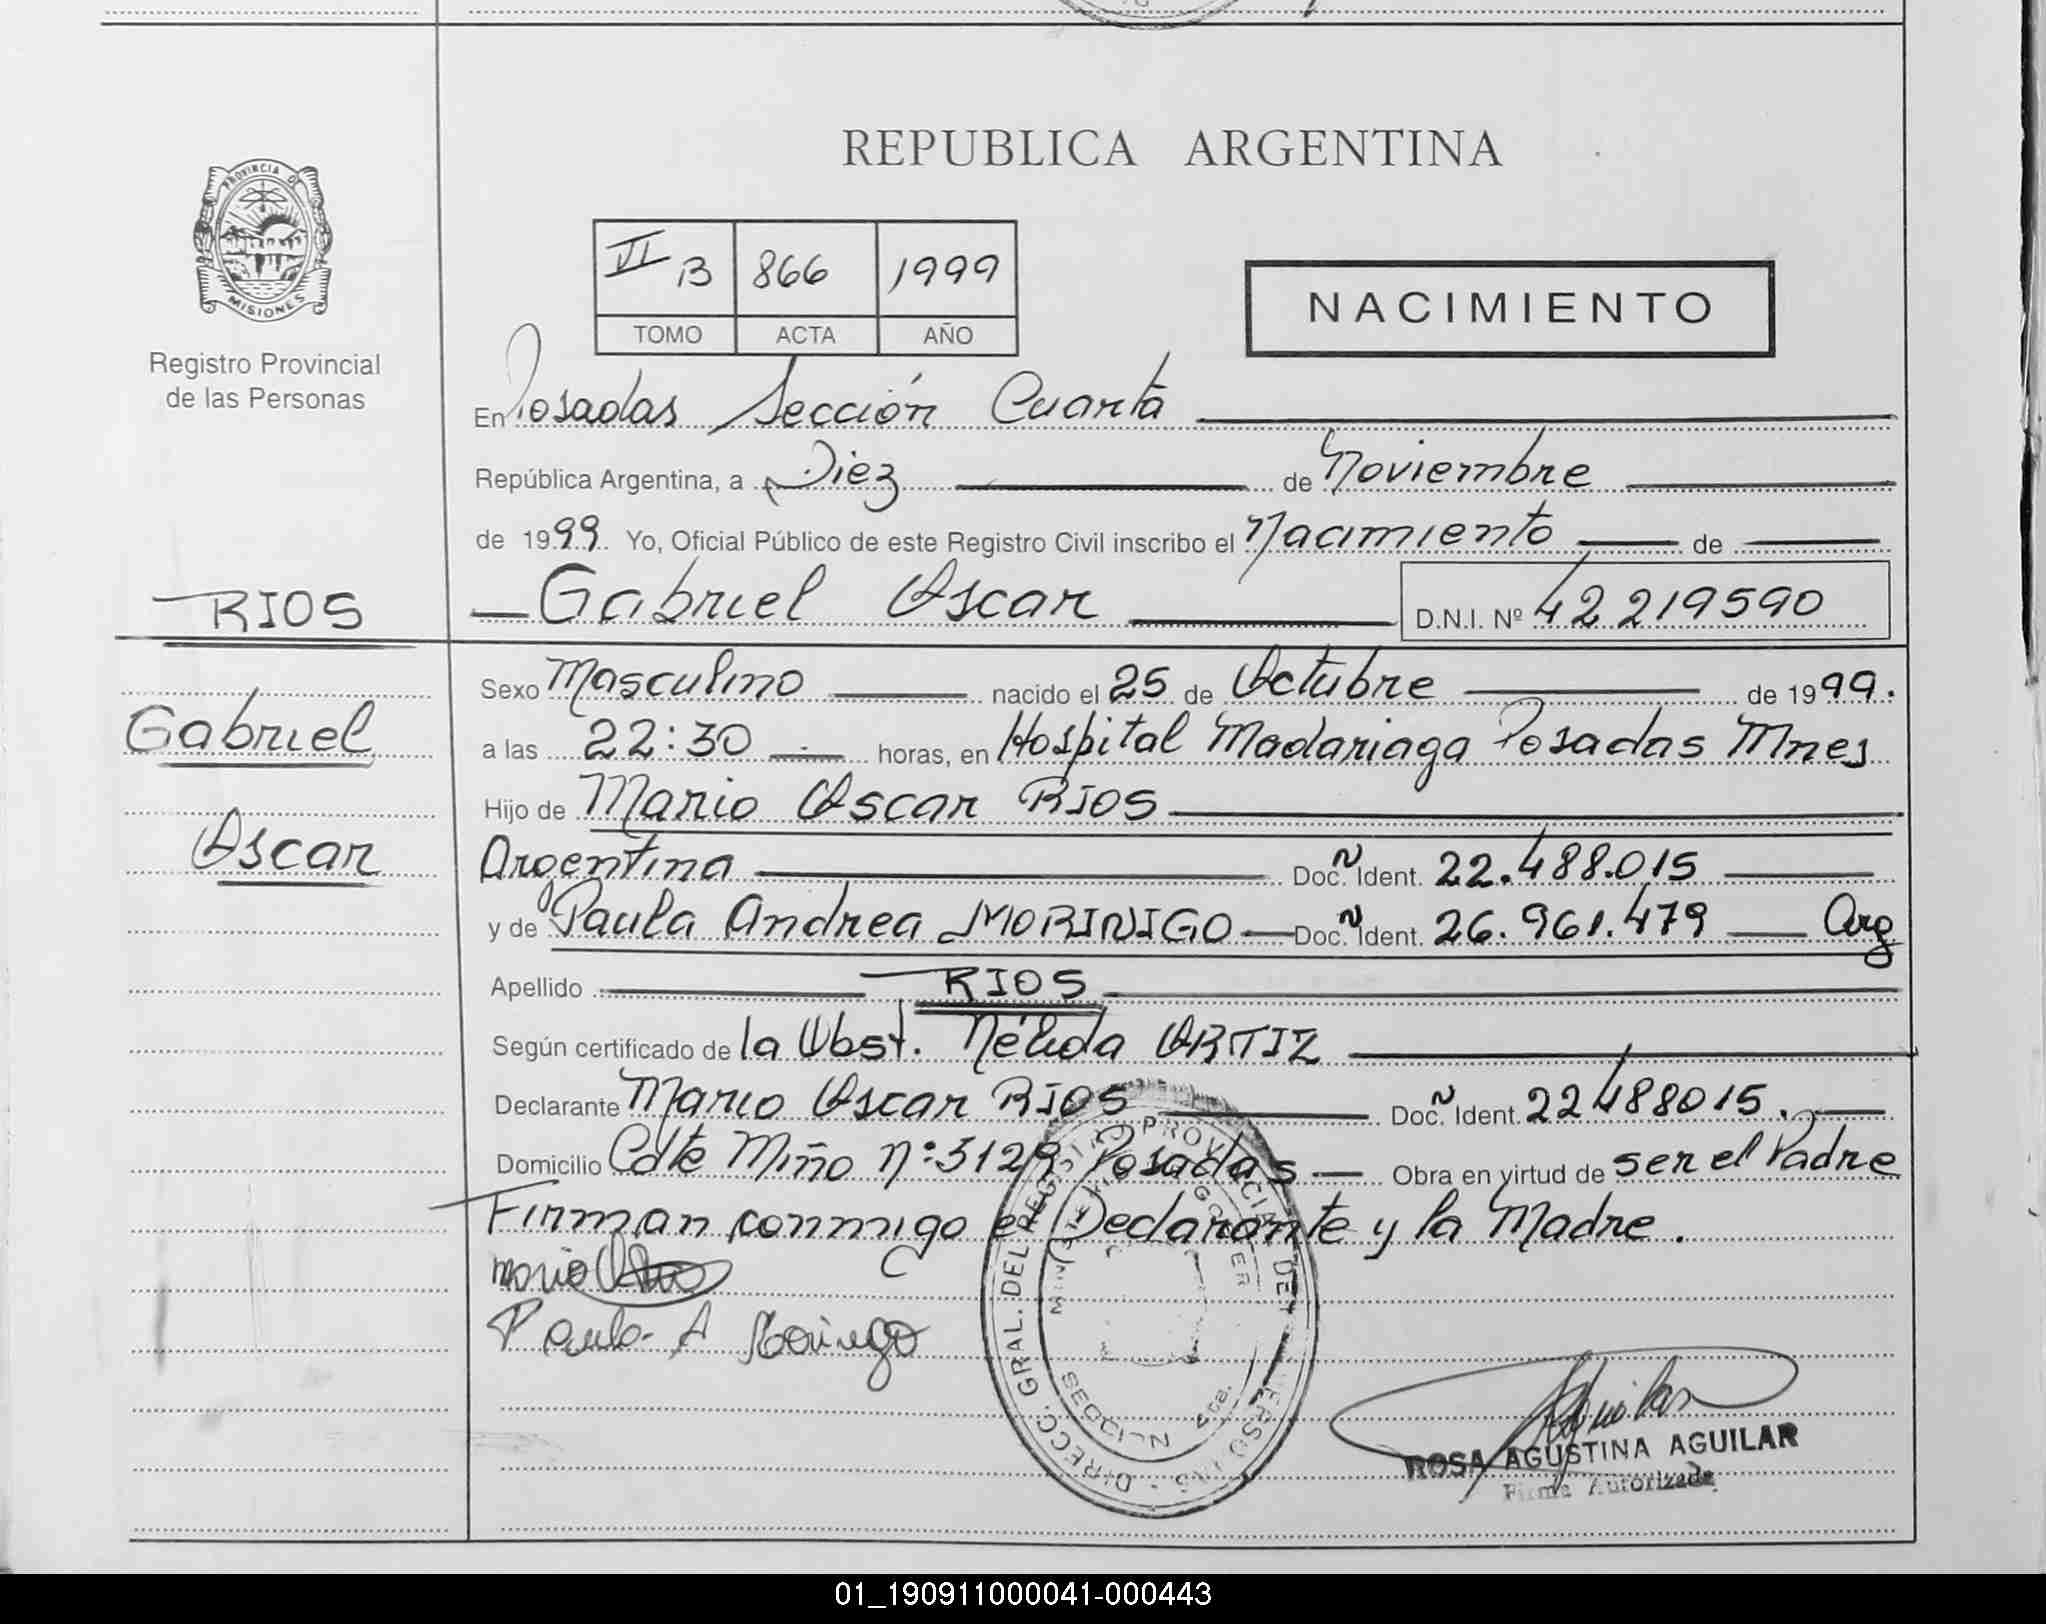 REPUBLICA ARGENTINA
PROVINCIA DE
MISIONES
Registro Provincial
de las Personas
VI B 866 1999
TOMO ACTA AÑO
NACIMIENTO
En Posadas Sección Cuarta
República Argentina, a Diez de Noviembre
de 1999. Yo, Oficial Público de este Registro Civil inscribo el Nacimiento de
RIOS
Gabriel Oscar D.N.I. Nº 42219590
Sexo Masculino nacido el 25 de Octubre de 1999.
Gabriel
a las 22:30 horas, en Hospital Madariaga Posadas Mnes
Hijo de Mario Oscar RIOS
Oscar
Argentina Doc. Ñ Ident. 22.488.015
y de Paula Andrea MORINIGO Doc. Ñ Ident. 26.961.479 Arg
Apellido RIOS
Según certificado de la Obst. Nélida ORTIZ
Declarante Mario Oscar RIOS Doc. Ñ Ident. 22488015.
Domicilio Cdte Miño n:3129 Posadas Obra en virtud de ser el Padre
Firman conmigo el Declarante y la Madre.
Mario
Paula A Morinigo
DIRECC. GRAL. DEL REGISTRO PROVINCIAL DE
SECCION 4ta.
Aguilar
ROSA AGUSTINA AGUILAR
Firma Autorizada
01_190911000041-000443